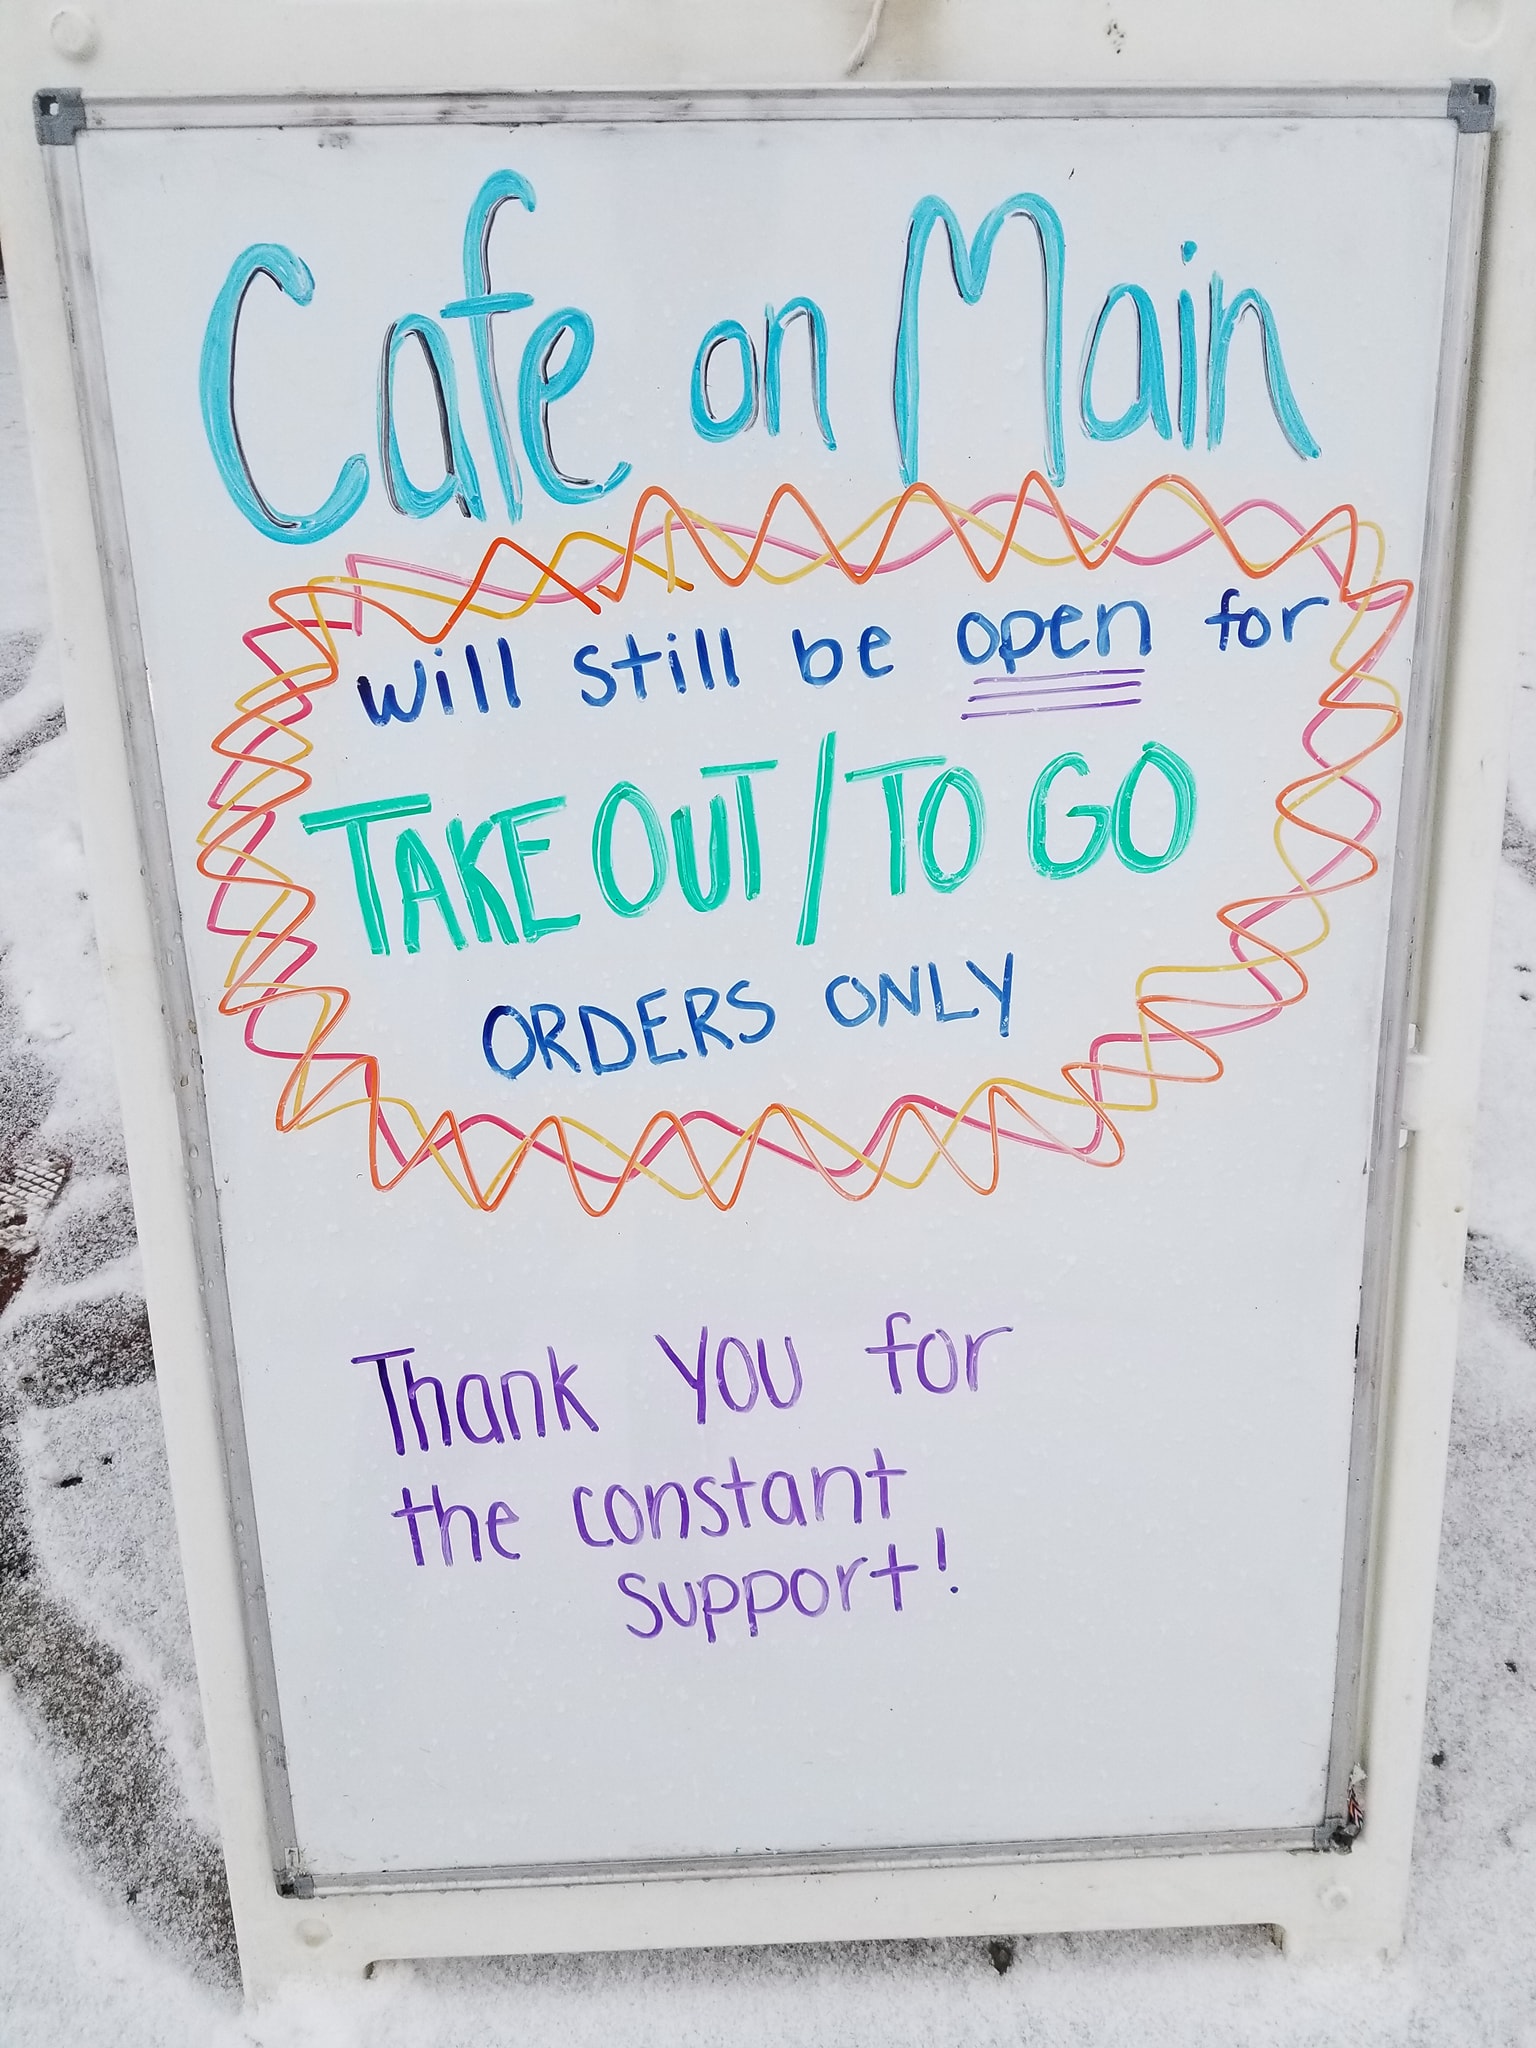 Cafe on Main
will still be open for
TAKE OUT / TO GO
ORDERS ONLY
Thank YOU for
the constant
support!